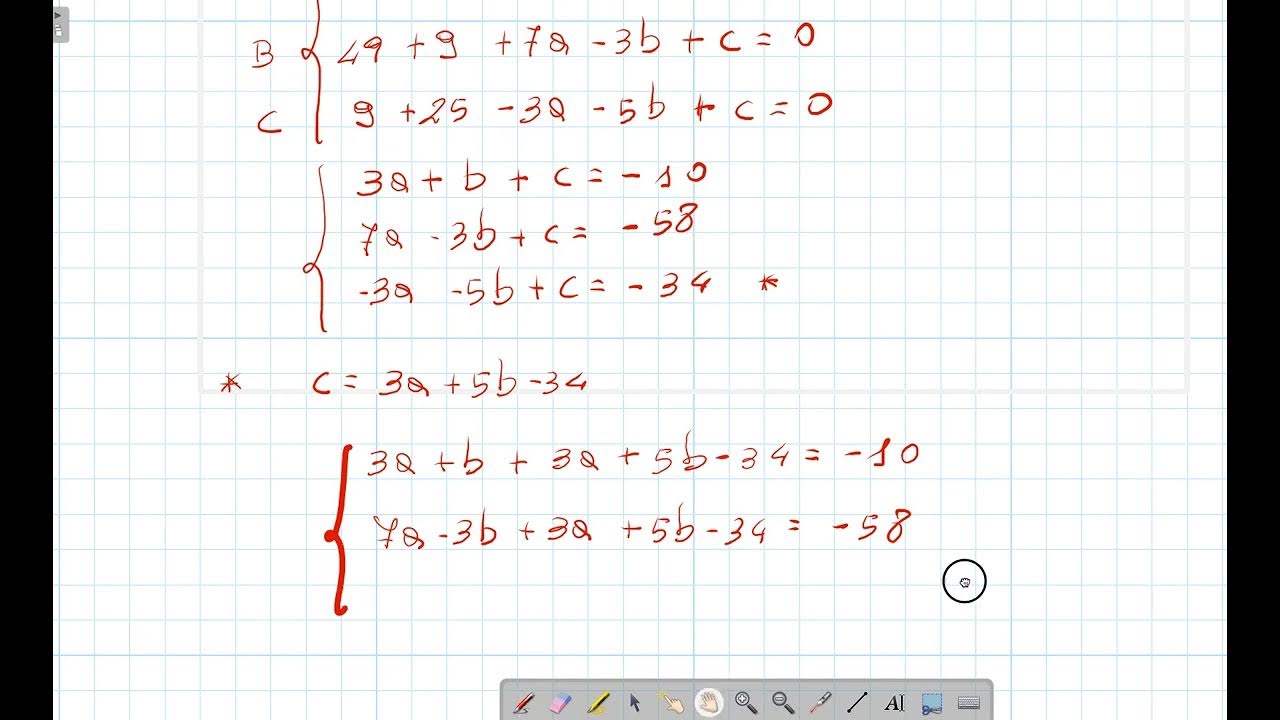 B 49 + 9 + 7a - 3b + c = 0
C 9 + 25 - 3a - 5b + c = 0
3a + b + c = - 10
7a - 3b + c = - 58
-3a - 5b + c = - 34 *
* c = 3a + 5b - 34
3a + b + 3a + 5b - 34 = - 10
7a - 3b + 3a + 5b - 34 = - 58
AI